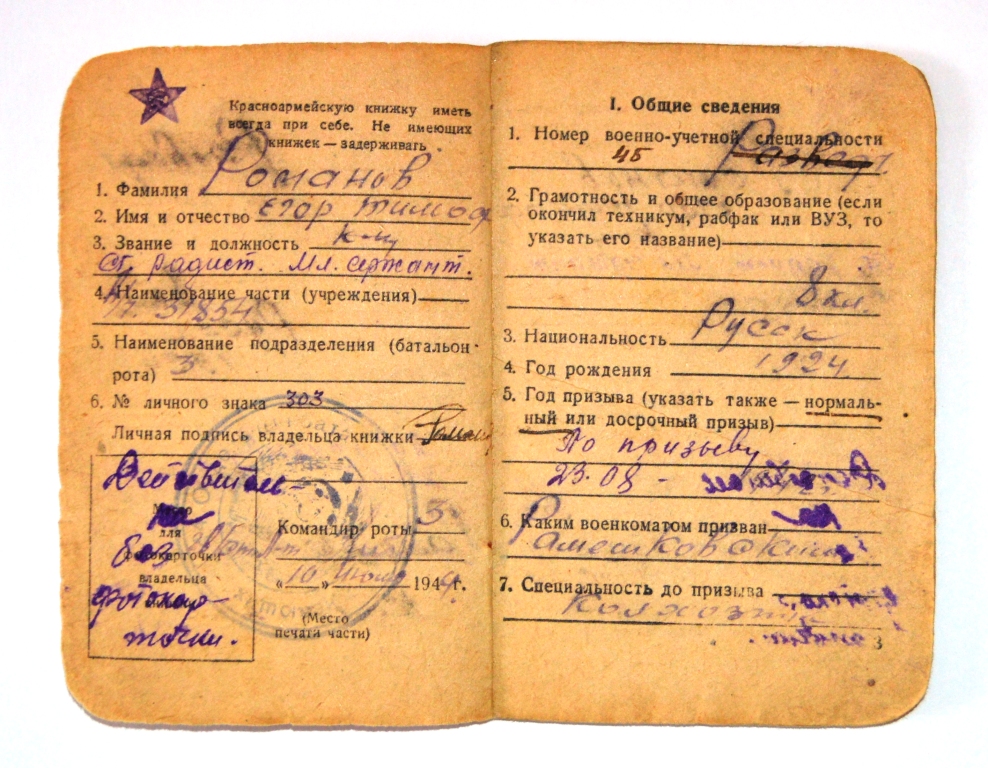 Красноармейскую книжку иметь
всегда при себе. Не имеющих
книжек — задерживать
1. Фамилия Романов
2. Имя и отчество Егор Тимоф
3. Звание и должность к-ц
Ст. радист. Мл. сержант.
4. Наименование части (учреждения)
31854
5. Наименование подразделения (батальон
рота) 3
6. № личного знака 303
Личная подпись владельца книжки
Действительна
Место
для
фотокарточки
владельца
без
фотокар-
точки.
Командир роты
«10» 1944 г.
(Место
печати части)
I. Общие сведения
1. Номер военно-учетной специальности
45 Развед
2. Грамотность и общее образование (если
окончил техникум, рабфак или ВУЗ, то
указать его название)
8 кл.
3. Национальность Русск
4. Год рождения 1924
5. Год призыва (указать также — нормаль-
ный или досрочный призыв)
По призыву
23.08
6. Каким военкоматом призван
Рамешковским
7. Специальность до призыва
Колхозник
3